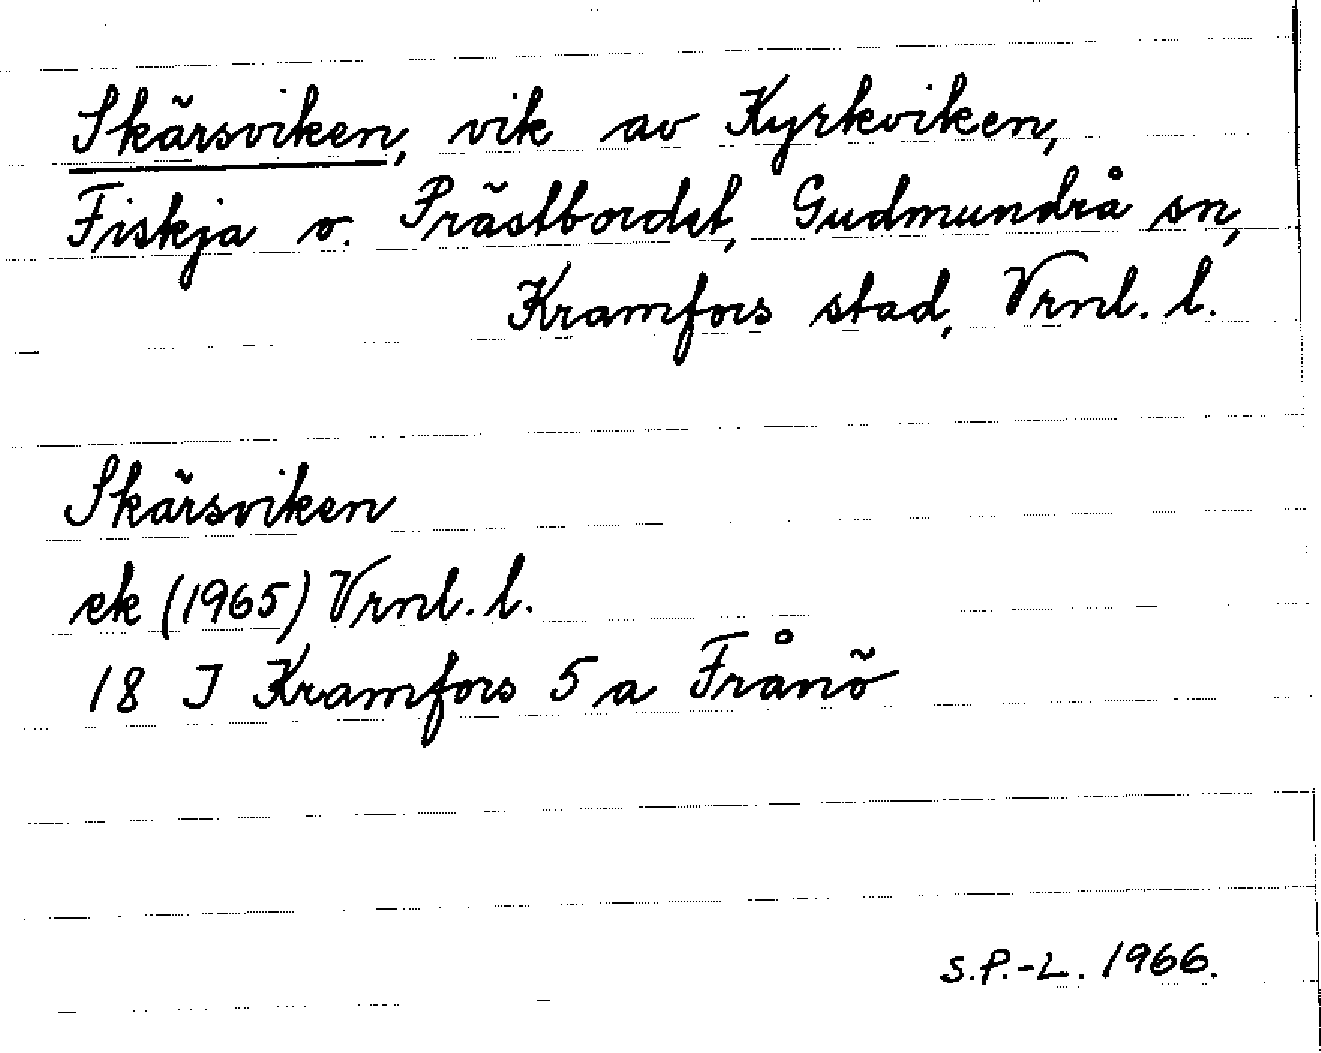 Skärsviken, vik av Kyrkviken,
Fiskja o. Prästbordet, Gudmundrå sn,
Kramfors stad, Vrnl. l.
Skärsviken
ek (1965) Vrnl. l.
18 I Kramfors 5 a Frånö
S.P.-L. 1966.